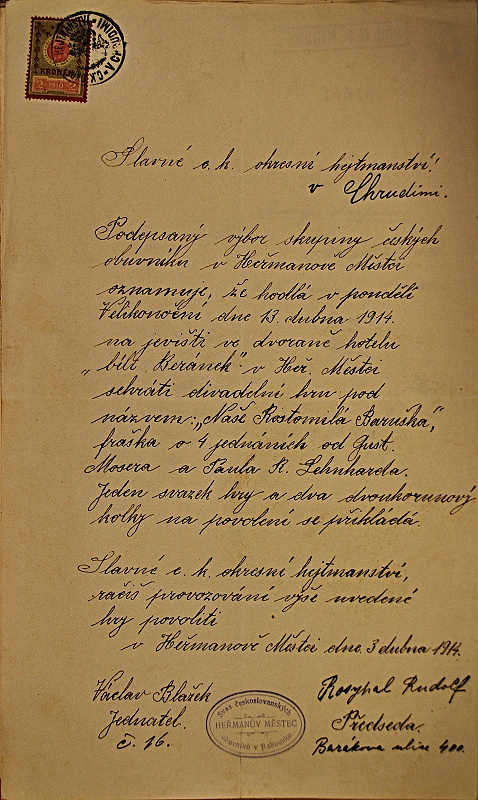 KRONEN
2 1910 2
Slavné c. k. okresní hejtmanství!
v Chrudimi.
Podepsaný výbor skupiny českých
obuvníku v Heřmanově Městci
oznamuje, že hodlá v pondělí
Velikonoční dne 13. dubna 1914.
na jevišti ve dvoraně hotelu
„bílí Beránek" v Heř. Městci
sehráti divadelní hru pod
názvem: „Naše Roztomilá Baruška",
fraška o 4 jednáních od Gust.
Mosera a Paula R. Lehnharda.
Jeden svazek hry a dva dvoukorunový
kolky na povolení se přikládá.
Slavné c. k. okresní hejtmanství,
račiš provozování výše uvedené
hry povoliti
v Heřmanově Městci dne 3 dubna 1914.
Václav Blažek
Jednatel.
č. 16.
Svaz československých
HEŘMANŮV MĚSTEC
obuvníků v Rakousku
Rosypal Rudolf
Předseda.
Barákova ulice 400.